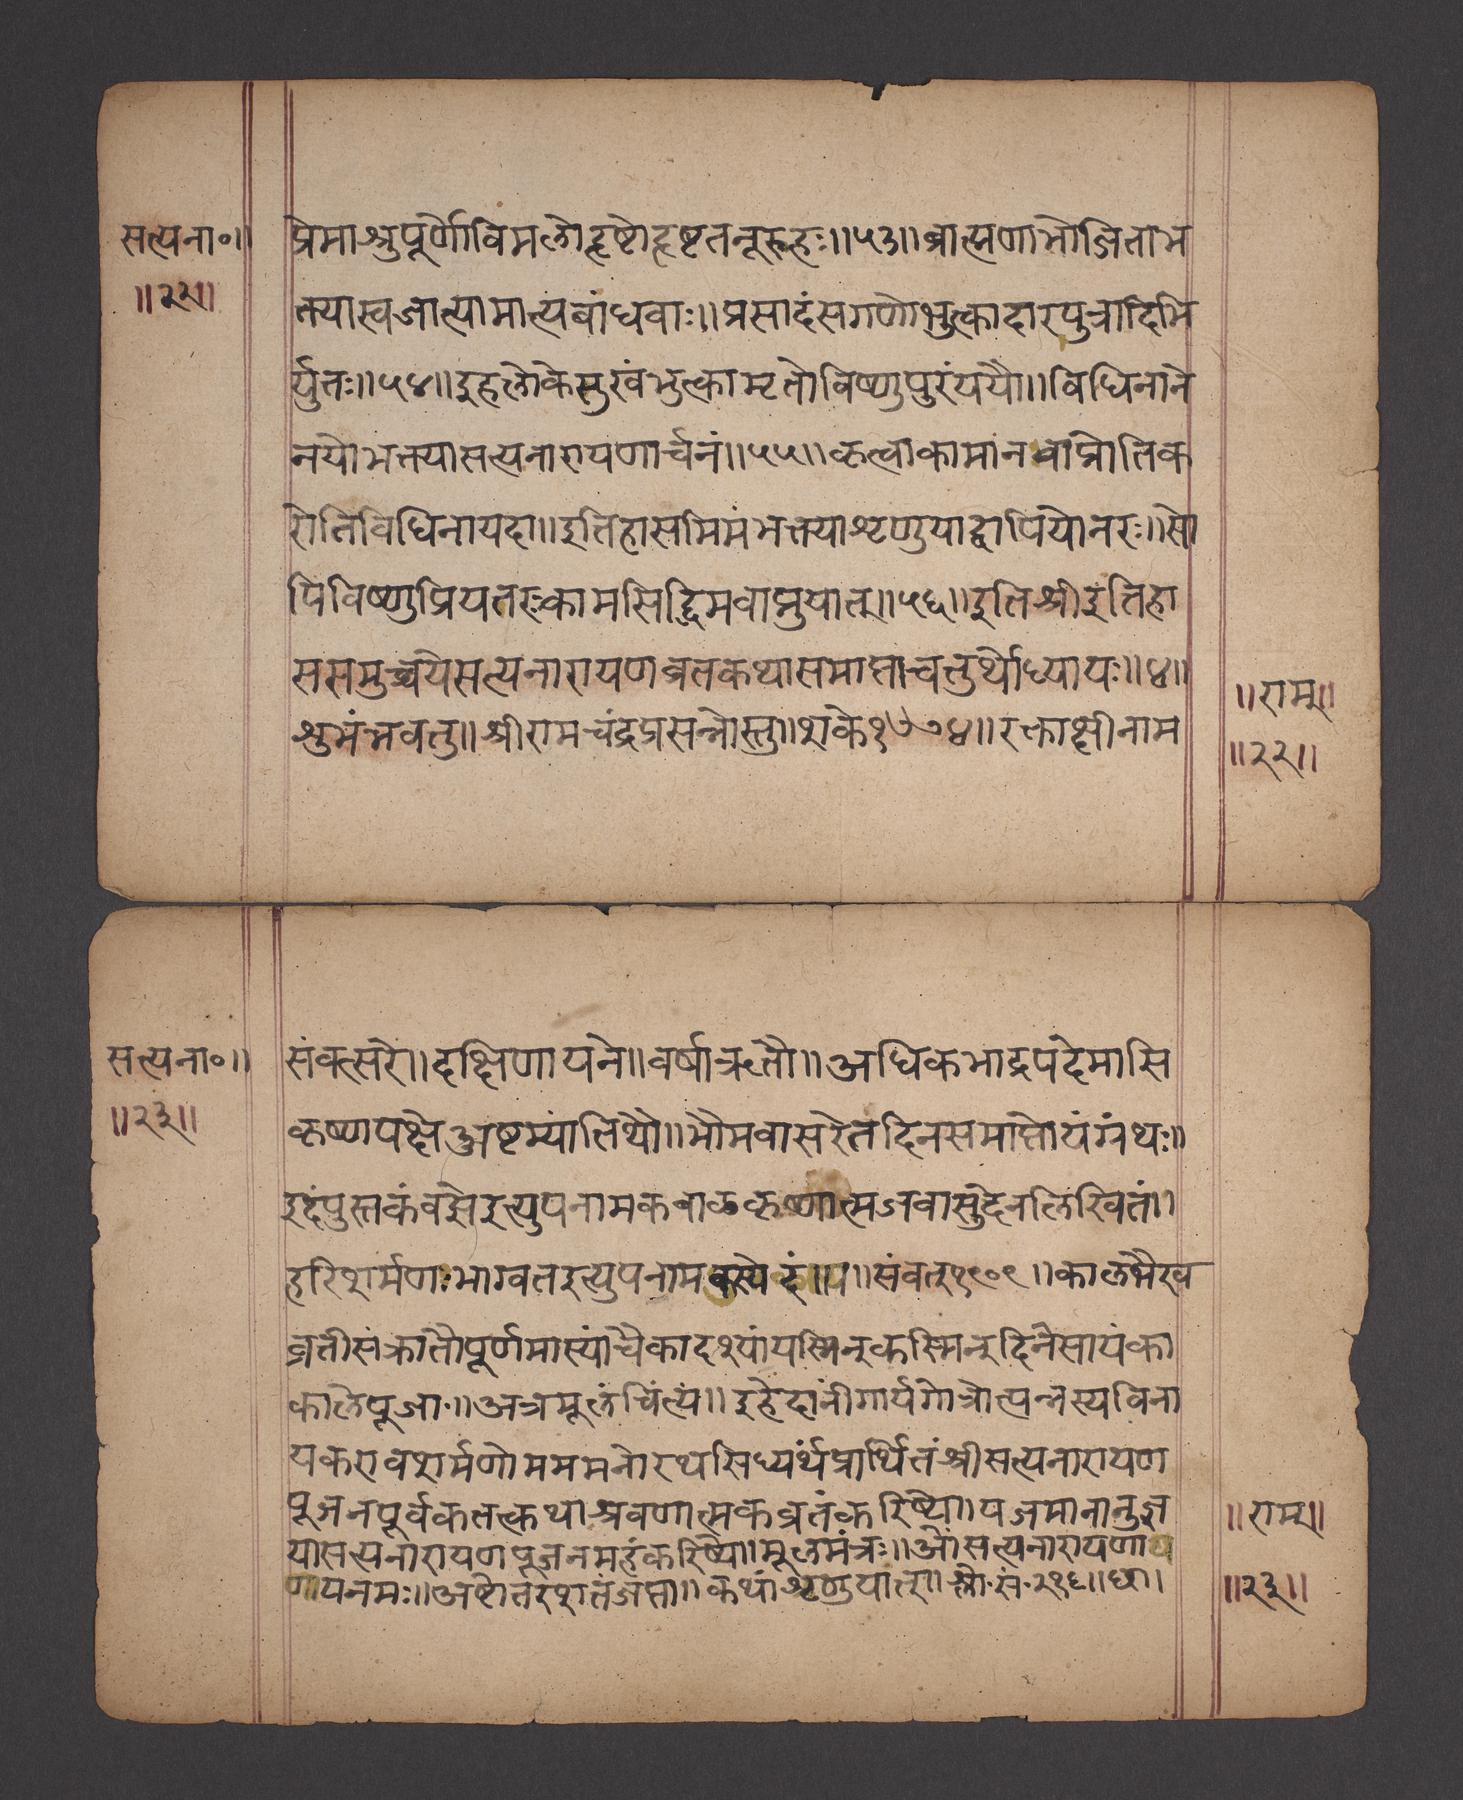 सत्यना०॥
॥२२॥
प्रेमाश्रुपूर्णोविमलोहृष्टोहृष्टतनूरुहः॥५३॥ब्राह्मणाभोजिताभ
क्त्यास्वजात्यामात्यबांधवाः॥प्रसादंसगणोभुत्कादारपुत्रादिभि
र्युतः॥५४॥इहलोकेसुखंभुत्कामृतोविष्णुपुरंययौ॥विधिनाने
नयोभक्त्यासत्यनारायणार्चनं॥५५॥कृत्वाकामानवाप्नोतिक
रोतिविधिनायदा॥इतिहासमिमंभक्त्याशृणुयाद्वापियोनरः॥सो
पिविष्णुप्रियतरःकामसिद्धिमवाप्नुयात्॥५६॥इतिश्रीइतिहा
ससमुच्चयेसत्यनारायणव्रतकथासमाप्ताचतुर्थोध्यायः॥४॥
शुभंभवतु॥श्रीरामचंद्रप्रसन्नोस्तु॥शके१७७४॥रक्ताक्षीनाम
॥राम॥
॥२२॥
सत्यना०॥
॥२३॥
संवत्सरे॥दक्षिणायने॥वर्षाऋतौ॥अधिकभाद्रपदेमासि
कृष्णपक्षेअष्टम्यांतिथौ॥भौमवासरेतदिनसमाप्तोयंग्रंथः॥
इदंपुस्तकंवझेइत्युपनामकबाळकृष्णात्मजवासुदेनलिखितं॥
हरिशर्मणःभागवतइत्युपनामकस्येदं॥प॥संवत्१९०९॥काळभैरव
व्रतीसंक्रातौपूर्णमास्यांचैकादश्यांयस्मिन्कस्मिन्दिनेसायंका
कालेपूजा॥अत्रमूलंचिंत्यं॥इहेदानींगार्ग्यगोत्रोत्पन्नस्यविना
यकरावशर्मणोमममनोरथसिध्यर्थंप्रार्थितंश्रीसत्यनारायण
पूजनपूर्वकतत्कथाश्रवणात्मकव्रतंकरिष्ये॥यजमानानुज्ञ
यासत्यनारायणपूजनमहंकरिष्ये॥मूळमंत्रः॥ओंसत्यनारायणाय
णायनमः॥अष्टोत्तरशतंजप्त्वा॥कथांशृणुयात्॥श्लो.सं.२१६॥छ॥
॥राम॥
॥२३॥